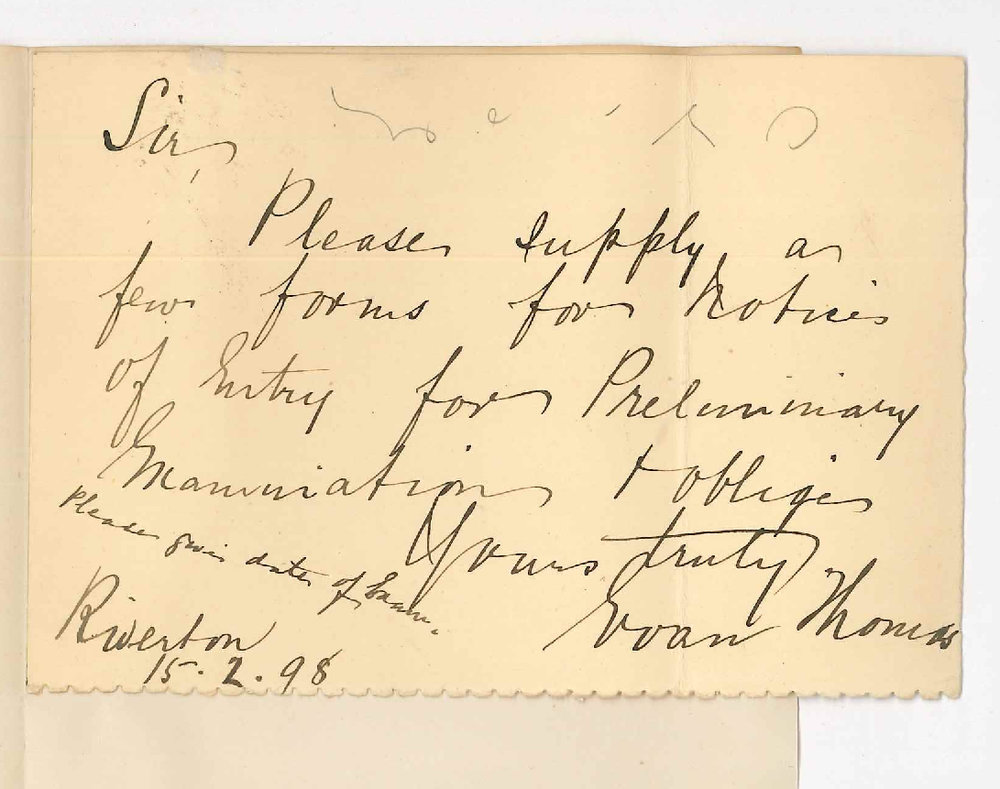 Sir,
Please supply a
few forms for Notices
of Entry for Preliminary
Examination & oblige
Yours truly,
Evan Thomas
Please give dates of Exam.
Riverton
15.2.98